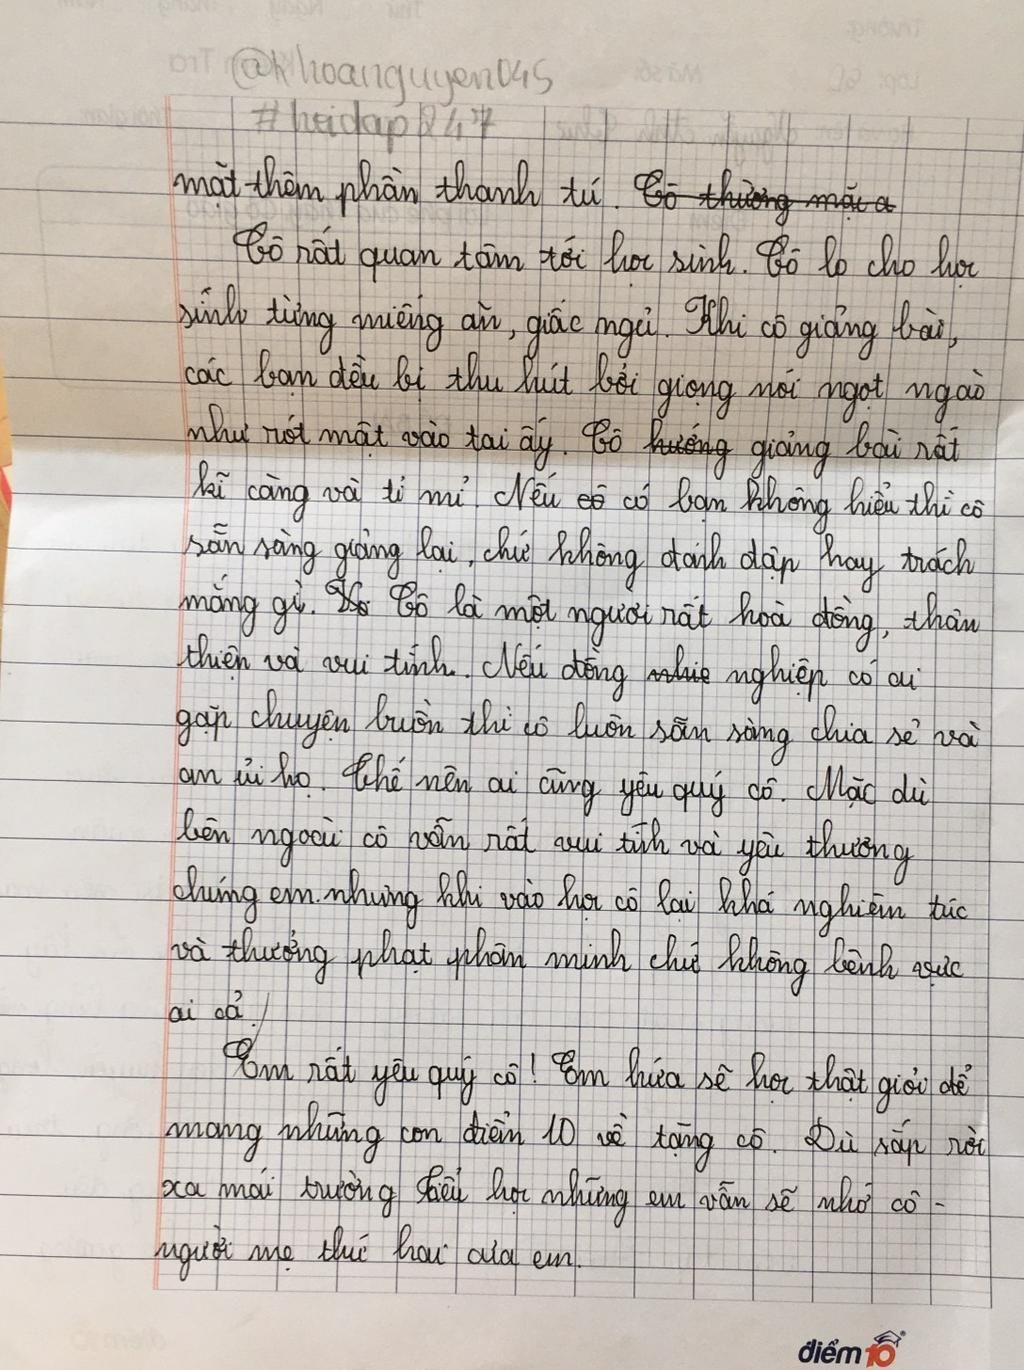 @khoanguyen045
#hoidap247
mặt thêm phần thanh tú. Cô thường mặc a
Cô rất quan tâm tới học sinh. Cô lo cho học
sinh từng miếng ăn, giấc ngủ. Khi cô giảng bài,
các bạn đều bị thu hút bởi giọng nói ngọt ngào
như rót mật vào tai ấy. Cô hướng giảng bài rất
kĩ càng và tỉ mỉ. Nếu cô có bạn không hiểu thì cô
sẵn sàng giảng lại, chứ không đánh đập hay trách
mắng gì. Cô là một người rất hoà đồng, thân
thiện và vui tính. Nếu đồng nghiệp có ai
gặp chuyện buồn thì cô luôn sẵn sàng chia sẻ và
an ủi họ. Thế nên ai cũng yêu quý cô. Mặc dù
bên ngoài cô vẫn rất vui tính và yêu thương
chúng em nhưng khi vào học cô lại khá nghiêm túc
và thưởng phạt phân minh chứ không bênh vực
ai cả.
Em rất yêu quý cô! Em hứa sẽ học thật giỏi để
mang những con điểm 10 về tặng cô. Dù sắp rời
xa mái trường tiểu học những em vẫn sẽ nhớ cô -
người mẹ thứ hai của em.
điểm 10